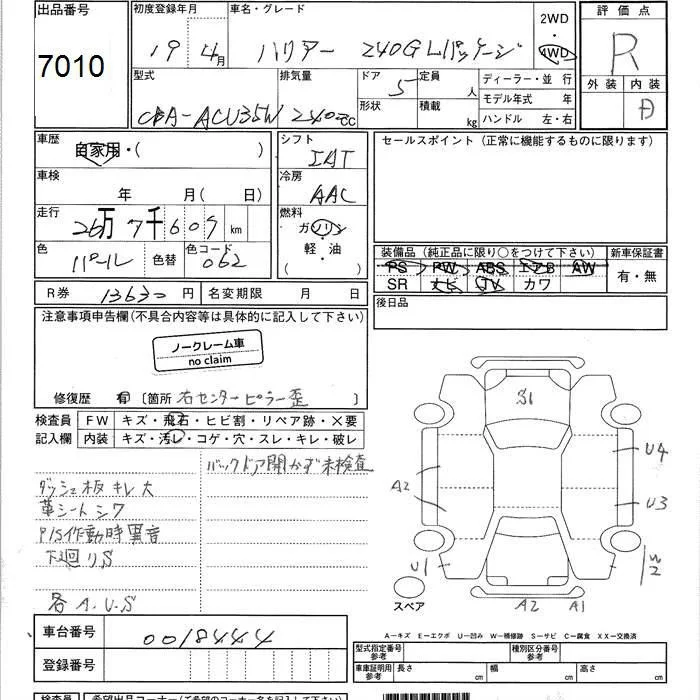 出品番号
7010
初度登録年月
19 4月
車名・グレード
ハリアー 240G Lパッケージ
2WD
・
4WD
評価点
R
外装 内装
D
型式
CBA-ACU35W
排気量
2400cc
ドア 5
形状
定員 人
積載 kg
ディーラー・並行
モデル年式 年
ハンドル 左・右
車歴
自家用・( )
車検
年 月( 日)
走行
26万7千609km
色
パール
色替
色コード
062
シフト
IAT
冷房
AAC
燃料
ガソリン
・
軽・油
( )
セールスポイント(正常に機能するものに限ります)
装備品(純正品に限り○をつけて下さい)
PS PW ABS エアB AW
SR ナビ TV カワ
新車保証書
有・無
R券 13630円
名変期限 月 日
後日品
注意事項申告欄(不具合内容等は具体的に記入して下さい)
ノークレーム車
no claim
修復歴 有 〔箇所 右センターピラー歪 〕
検査員
記入欄
FW キズ・飛石・ヒビ割・リペア跡・×要
内装 キズ・汚レ・コゲ・穴・スレ・キレ・破レ
バックドア開かず未検査
ダッシュ板キレ大
革シートシワ
P/S作動時異音
下廻りS
各A.U.S
S1
U4
A2
U3
U1
W2
A2 A1
スペア
A-キズ E-エクボ U-凹み W-補修跡 S-サビ C-腐食 XX-交換済
車台番号
0018444
登録番号
型式指定番号
参考
種別区分番号
参考
車庫証明用
参考
長さ cm
幅 cm
高さ cm
検査員
希望出品コーナー(ご希望のコーナー名を記入して下さい)